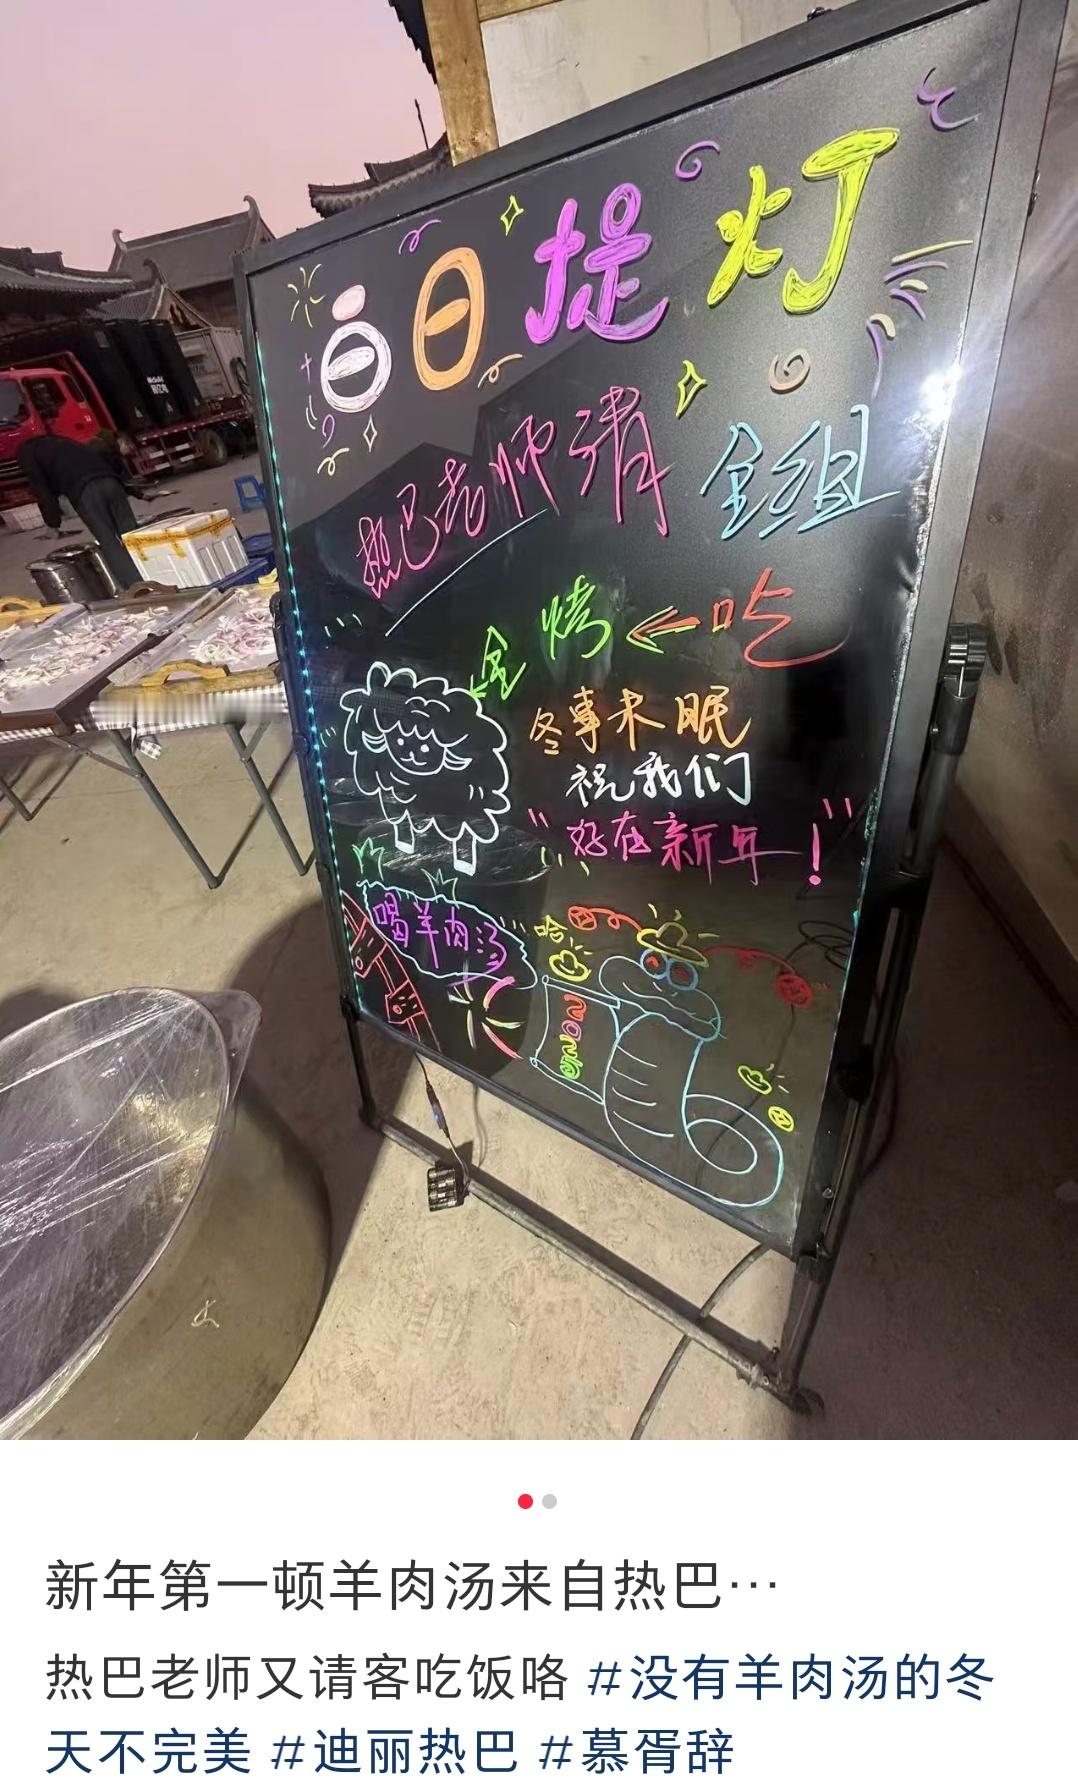 白日提灯
热巴老师请全组
吃
烤
全
冬事未眠
祝我们
好在新年!
喝羊肉汤
哈
2025
新年第一顿羊肉汤来自热巴…
热巴老师又请客吃饭咯 #没有羊肉汤的冬
天不完美 #迪丽热巴 #慕胥辞